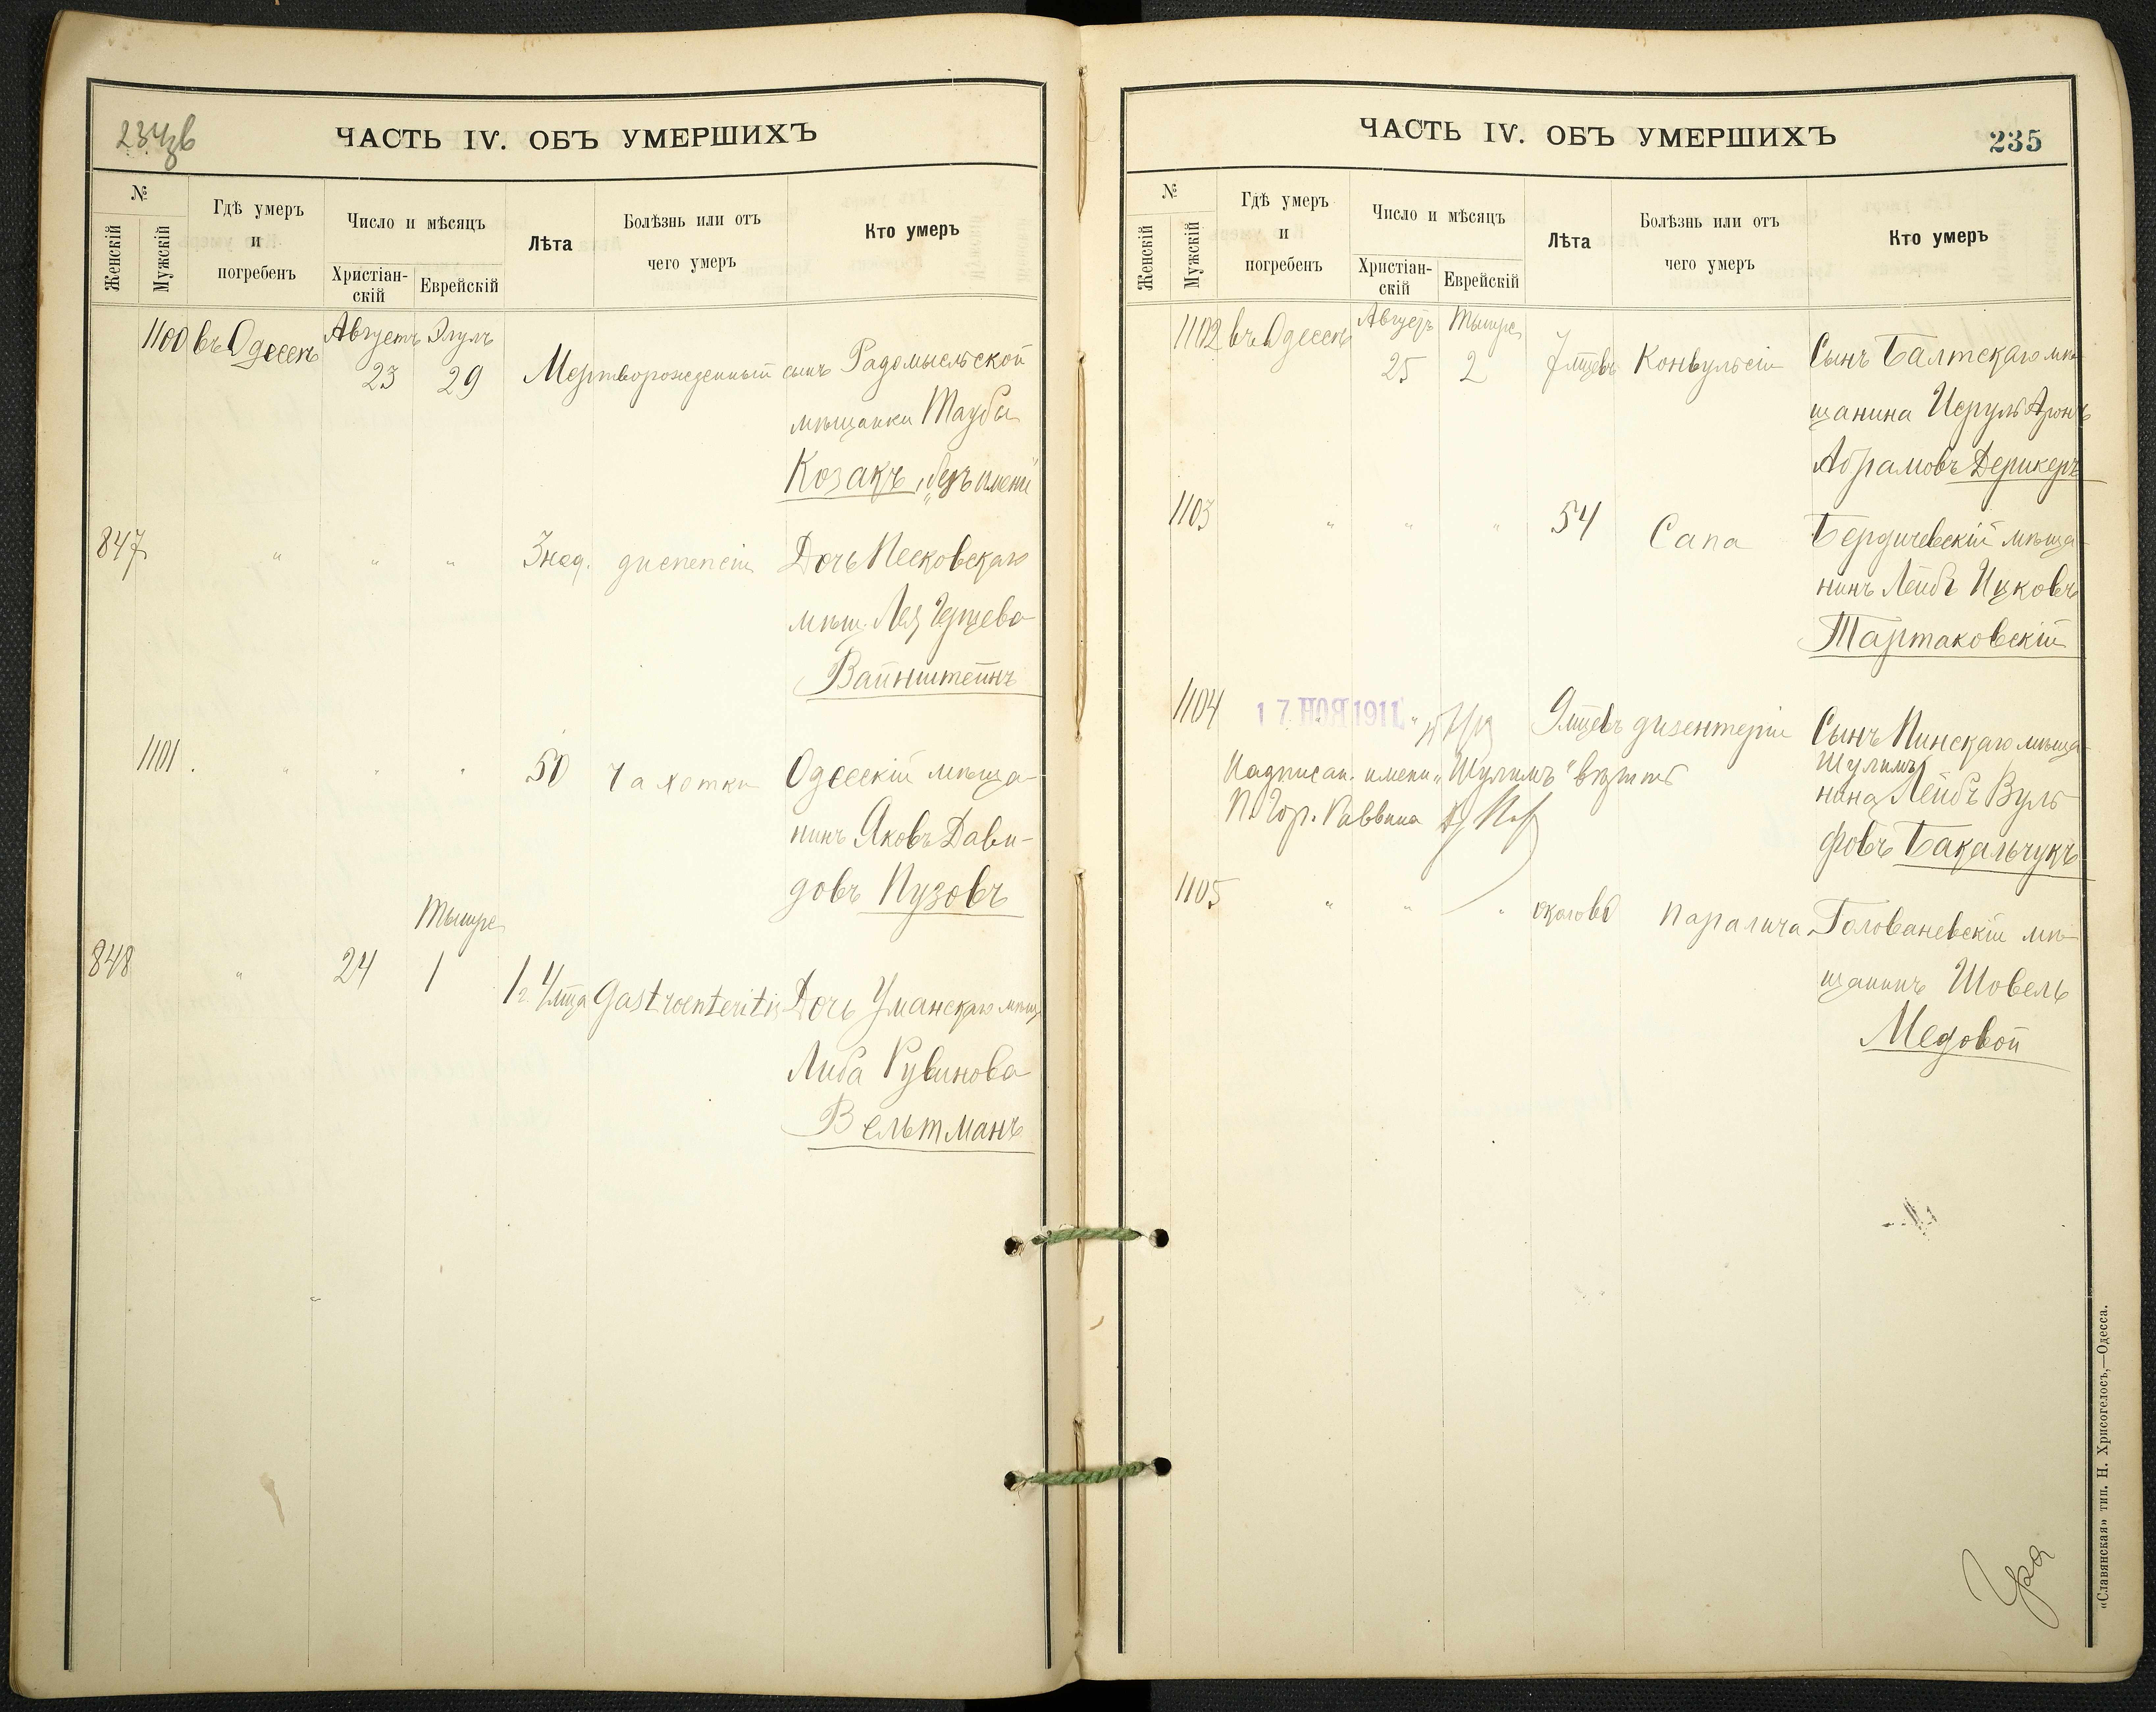 234 об
ЧАСТЬ IV. ОБЪ УМЕРШИХЪ
№
Женскій
Мужскій
Гдѣ умеръ
и
погребенъ
Число и мѣсяцъ
Христіан-
скій
Еврейскій
Лѣта
Болѣзнь или отъ
чего умеръ
Кто умеръ
1100 въ Одессѣ Августъ Элулъ
23 29 Мертворожденный сынъ Радомысльской
мѣщанки Тауба
Козакъ, „безъ имени"
847 " " " 3 нед. диспепсіи Дочь Песковскаго
мѣщ. Лея Герцева
Вайнштейнъ
1101 " " " 50 Чахотки Одесскій мѣща-
нинъ Яковъ Дави-
довъ Пузовъ
Тышре
848 " 24 1 1 г. 4 мца Gastroenteritis Дочь Уманскаго мѣщ
Либа Рувинова
Вельтманъ
ЧАСТЬ IV. ОБЪ УМЕРШИХЪ
235
№
Женскій
Мужскій
Гдѣ умеръ
и
погребенъ
Число и мѣсяцъ
Христіан-
скій
Еврейскій
Лѣта
Болѣзнь или отъ
чего умеръ
Кто умеръ
1102 въ Одессѣ Августъ Тышре
25 2 7 мцевъ Конвульсіи Сынъ Балтскаго мѣ-
щанина Исруль Аронъ
Абрамовъ Дерикеръ
1103 " " " 54 Сапа Бердичевскій мѣща-
нинъ Лейбъ Ицковъ
Тартаковскій
1104 17 НОЯ 1911 " 9 мцевъ дизентеріи Сынъ Пинскаго мѣща-
Шулимъ
нина Лейбъ Вуль-
фовъ Бакальчукъ
Надписан. имени „Шулимъ"
П. Гор. Раввина
1105 " " " около 60 паралича Голованевскій мѣ-
щанинъ Шовель
Медовой
«Славянская» тип. Н. Хрисогелосъ,—Одесса.